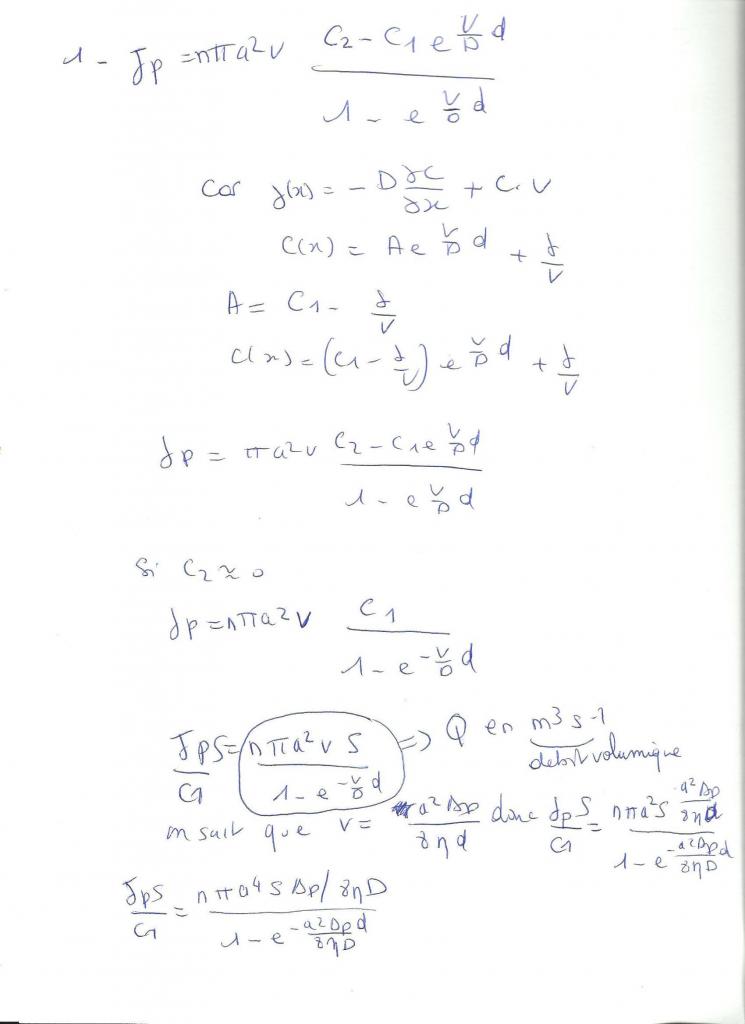 1 - Jp = nπa²v (C2 - C1 e^(V/D d)) / (1 - e^(V/D d))
Car j(x) = - D ∂C/∂x + C.V
C(x) = A e^(V/D d) + j/V
A = C1 - j/V
C(x) = (C1 - j/V) e^(V/D d) + j/V
Jp = πa²v (C2 - C1 e^(V/D d)) / (1 - e^(V/D d))
Si C2 ≈ 0
Jp = nπa²v C1 / (1 - e^(-V/D d))
JpS/C1 = nπa²vS / (1 - e^(-V/D d)) => Q en m3 s-1
debit volumique
on sait que v = a²Δp / 8ηd donc JpS/C1 = nπa²S a²Δp/8ηd / (1 - e^(-a²Δp d/8ηD))
JpS/C1 = nπa⁴SΔp/8ηD / (1 - e^(-a²Δp d/8ηD))